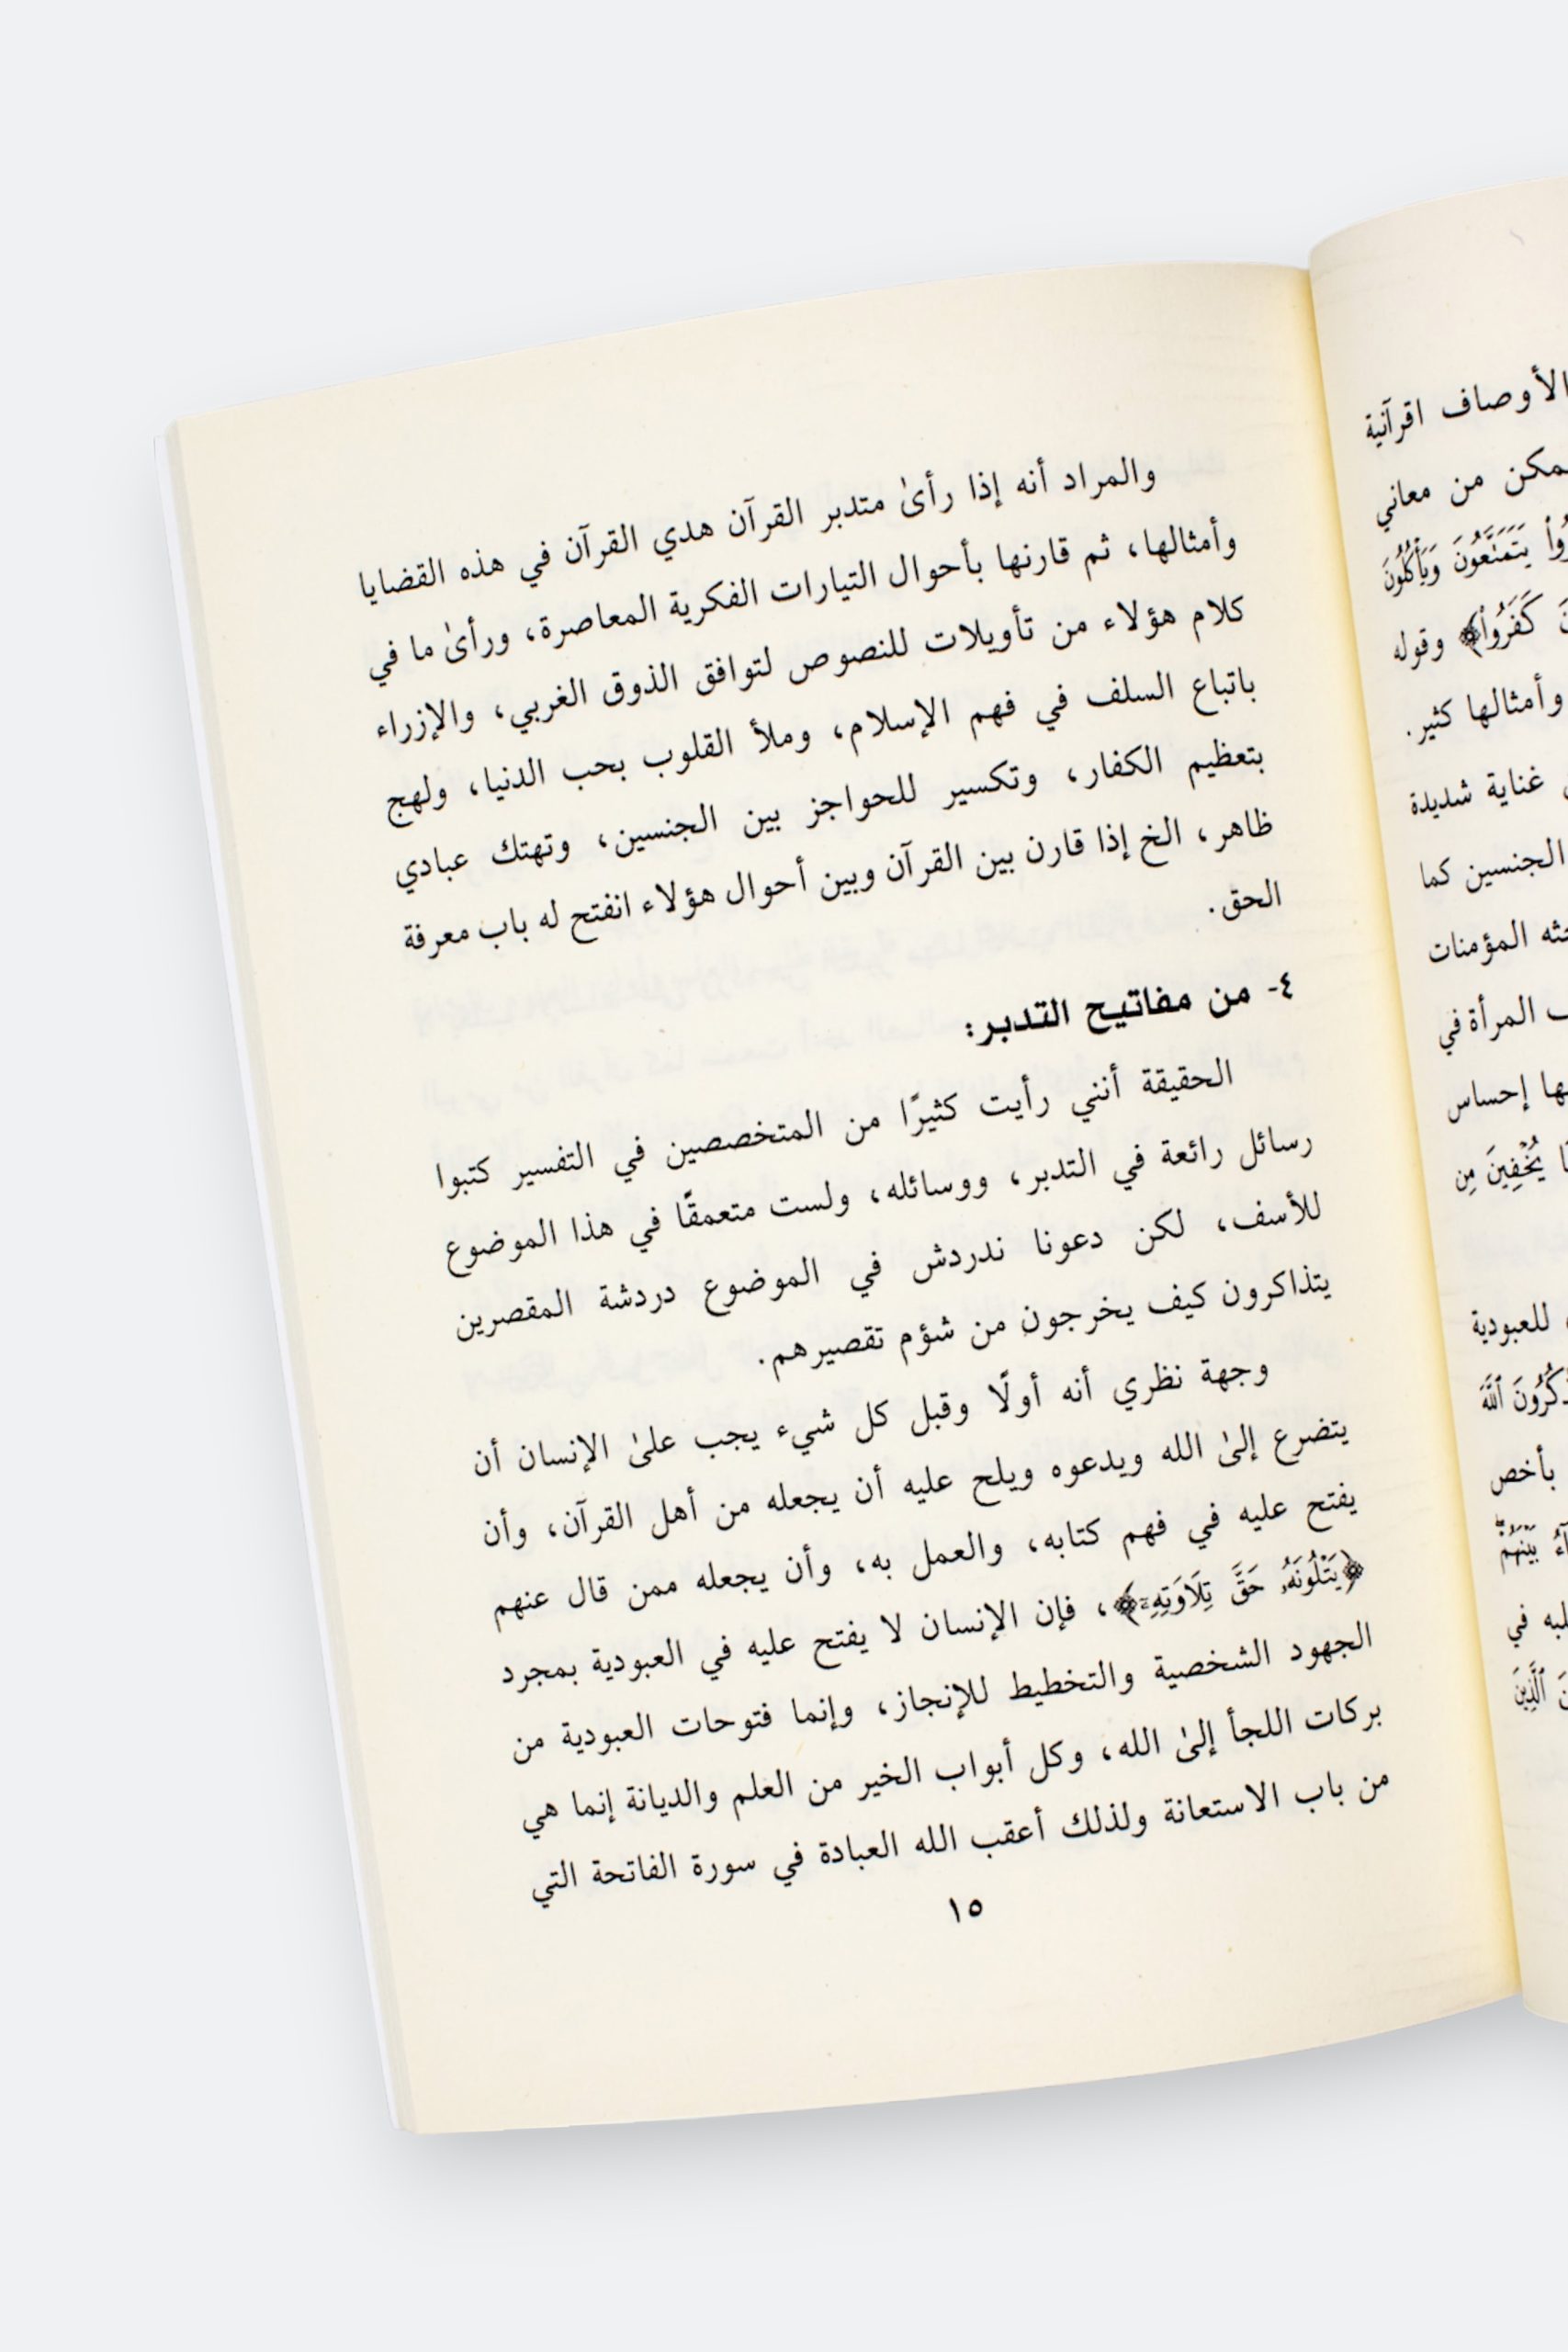 الأوصاف اقرآنية
من معاني
يَتَمَتَّعُونَ وَيَأْكُلُونَ
كَفَرُوا۟﴾ وقوله
وأمثالها كثير.
غناية شديدة
الجنسين كما
المؤمنات
المرأة في
إحساس
يُخْفِينَ مِن
للعبودية
ٱللَّهَ
بأخص
بَيْنَهُمْ
في
ٱلَّذِينَ
والمراد أنه إذا رأىٰ متدبر القرآن هدي القرآن في هذه القضايا
وأمثالها، ثم قارنها بأحوال التيارات الفكرية المعاصرة، ورأىٰ ما في
كلام هؤلاء من تأويلات للنصوص لتوافق الذوق الغربي، والإزراء
باتباع السلف في فهم الإسلام، وملأ القلوب بحب الدنيا، ولهج
بتعظيم الكفار، وتكسير للحواجز بين الجنسين، وتهتك عبادي
ظاهر، الخ إذا قارن بين القرآن وبين أحوال هؤلاء انفتح له باب معرفة
الحق.
٤- من مفاتيح التدبر:
الحقيقة أنني رأيت كثيرًا من المتخصصين في التفسير كتبوا
رسائل رائعة في التدبر، ووسائله، ولست متعمقًا في هذا الموضوع
للأسف، لكن دعونا ندردش في الموضوع دردشة المقصرين
يتذاكرون كيف يخرجون من شؤم تقصيرهم.
وجهة نظري أنه أولًا وقبل كل شيء يجب علىٰ الإنسان أن
يتضرع إلىٰ الله ويدعوه ويلح عليه أن يجعله من أهل القرآن، وأن
يفتح عليه في فهم كتابه، والعمل به، وأن يجعله ممن قال عنهم
﴿يَتْلُونَهُۥ حَقَّ تِلَاوَتِهِۦٓ﴾، فإن الإنسان لا يفتح عليه في العبودية بمجرد
الجهود الشخصية والتخطيط للإنجاز، وإنما فتوحات العبودية من
بركات اللجأ إلىٰ الله، وكل أبواب الخير من العلم والديانة إنما هي
من باب الاستعانة ولذلك أعقب الله العبادة في سورة الفاتحة التي
١٥